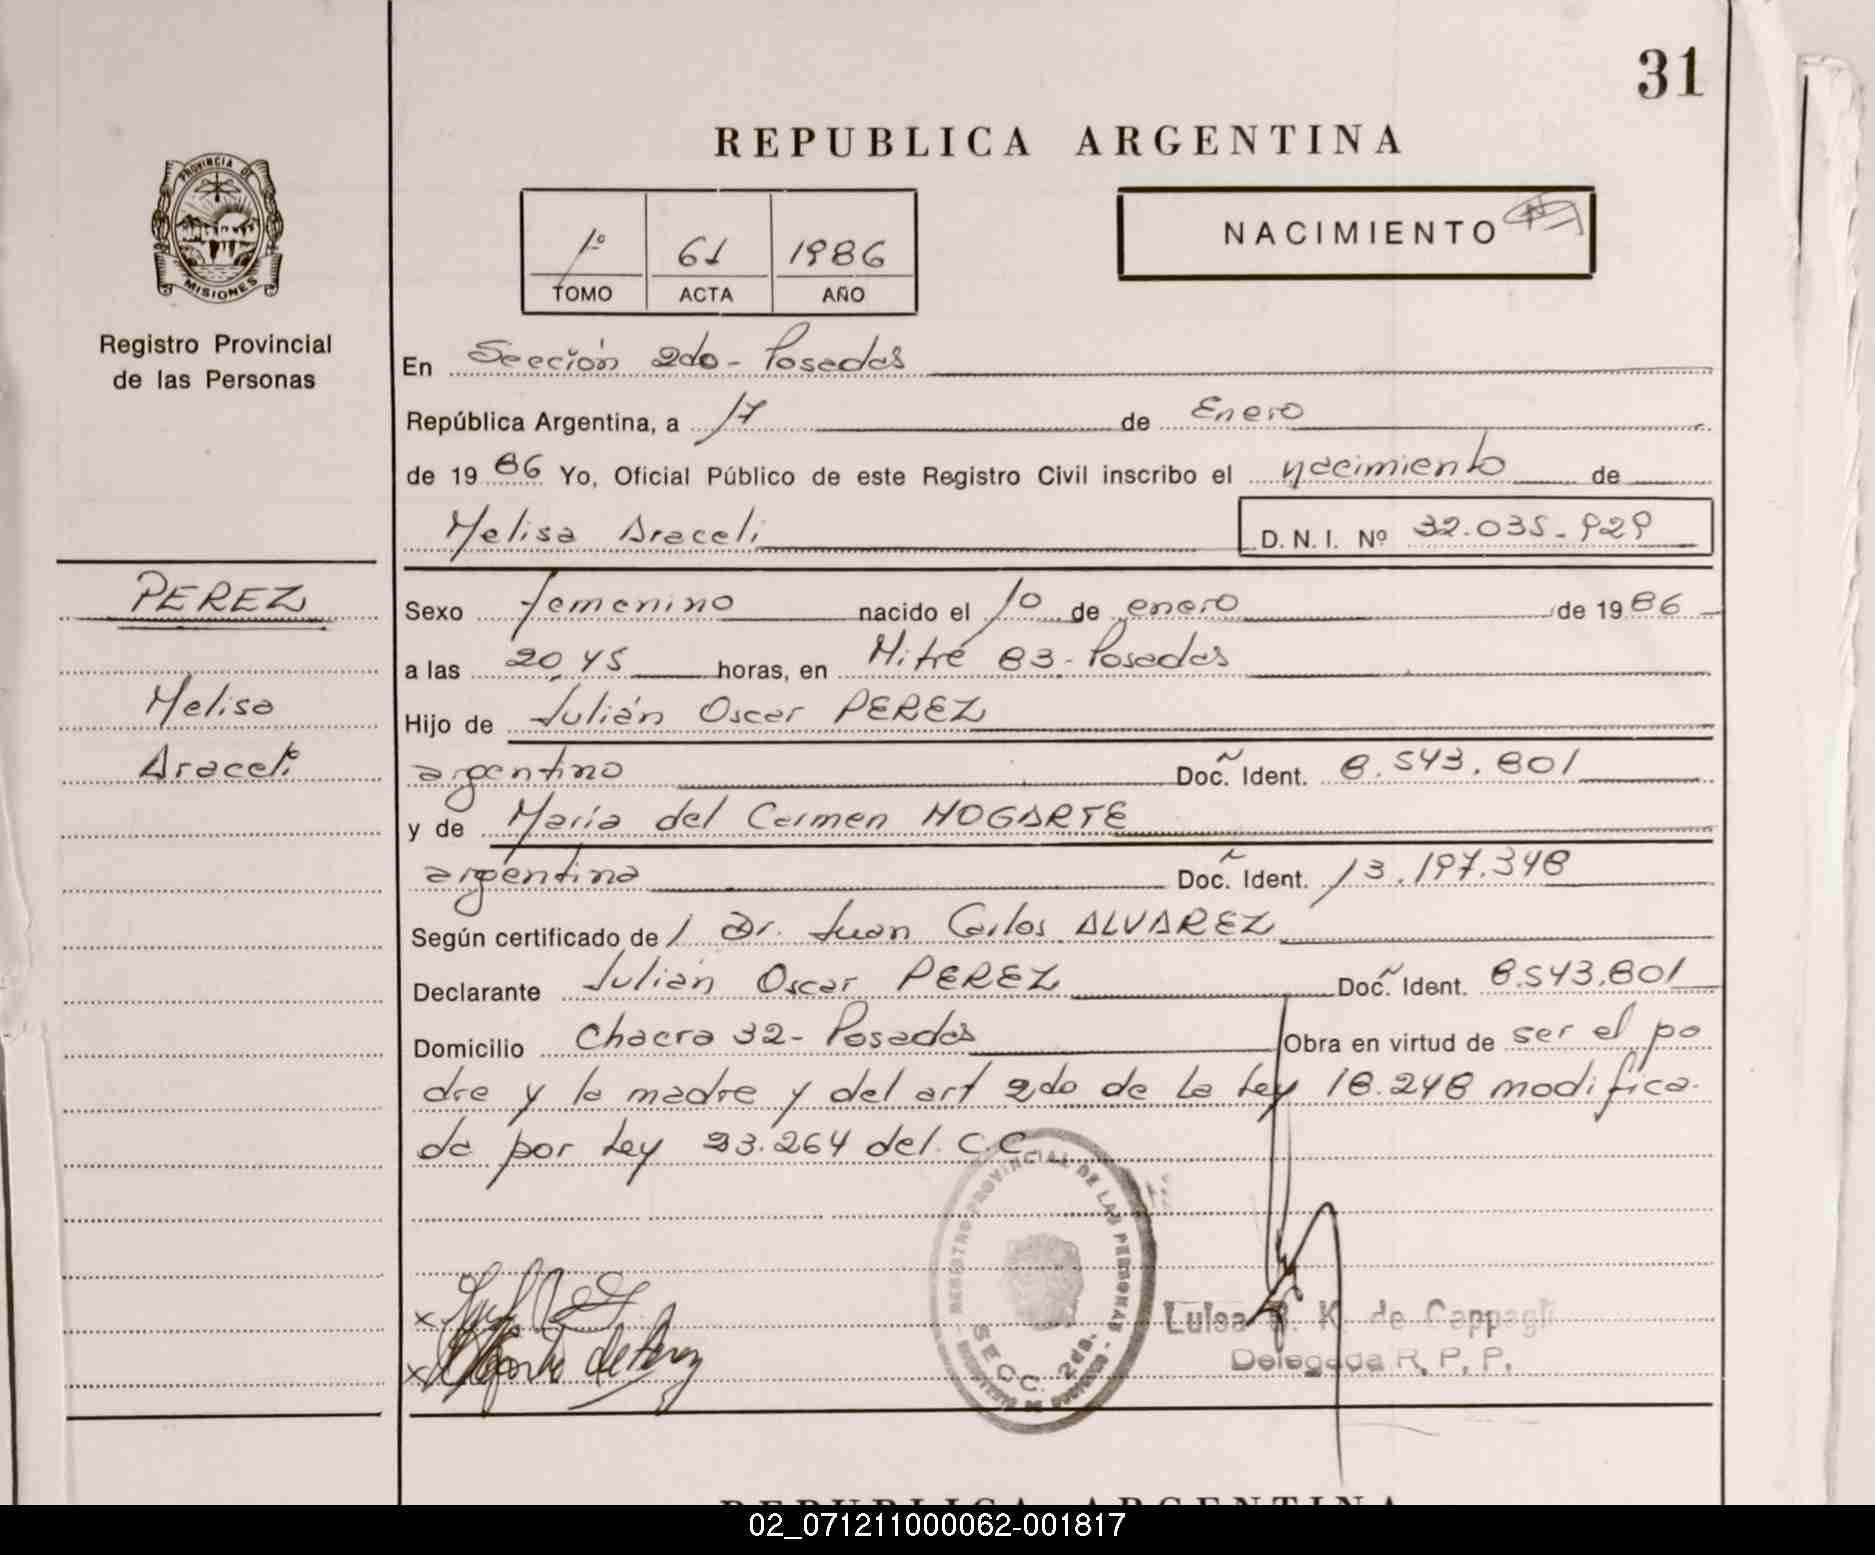 31
REPUBLICA ARGENTINA
PROVINCIA DE
MISIONES
Registro Provincial
de las Personas
1º 61 1986
TOMO ACTA AÑO
NACIMIENTO
En Sección 2do - Posadas
República Argentina, a 17 de Enero
de 1986 Yo, Oficial Público de este Registro Civil inscribo el nacimiento de
Melisa Araceli D. N. I. Nº 32.035.929
PEREZ
Melisa
Araceli
Sexo femenino nacido el 10 de enero de 1986
a las 20,45 horas, en Mitre 83 - Posadas
Hijo de Julián Oscar PEREZ
argentino Doc. Ident. 8.543.801
y de María del Carmen HOGARTE
argentina Doc. Ident. 13.197.348
Según certificado de / Dr. Juan Carlos ALVAREZ
Declarante Julián Oscar PEREZ Doc. Ident. 8.543.801
Domicilio Chacra 32 - Posadas Obra en virtud de ser el pa
dre y la madre y del art 2do de la Ley 18.248 modifica-
da por Ley 23.264 del C.C.
REGISTRO PROVINCIAL DE LAS PERSONAS
SECC. 2da.
Luisa K. de Cappagli
Delegada R. P. P.
REPUBLICA ARGENTINA
02_071211000062-001817